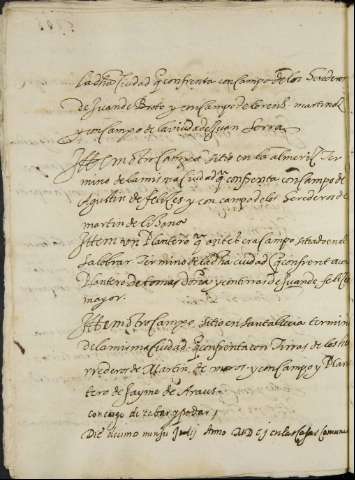 la dha Ciudad q confrenta con campo de los herederos
de Juan de Broto y con campo de Lorenso martinez
y con campo de la viuda de Juan Serra
Ittem otro Campo sitio en la almeriz Ter
mino de la misma ciudad q confrenta con campo de
Agustin de felizes y con campo de los herederos de
martin de
Ittem un Plantero q antes era campo sitiado en el
Salobrar Termino de la dha ciudad q confrenta con
Plantero de tomas y con tierras de Juan de felizes
mayor.
Ittem otro Campo sitio en santa lucia termino
de la misma Ciudad q confrenta con Tierras de los he
rrederos de Martin de muros y con Campo y Plan
tero de Jayme de Araus
con cargo de rebar y podar
Die decimo mensis Julij Anno MDCj en las Casas comunes